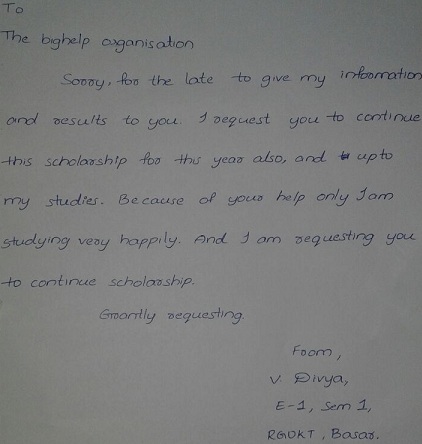 To
The bighelp organisation
Sorry, for the late to give my information
and results to you. I request you to continue
this scholarship for this year also, and upto
my studies. Because of your help only I am
studying very happily. And I am requesting you
to continue scholarship.
Grantly requesting.
From,
V. Divya,
E-1, Sem 1,
RGUKT, Basar.